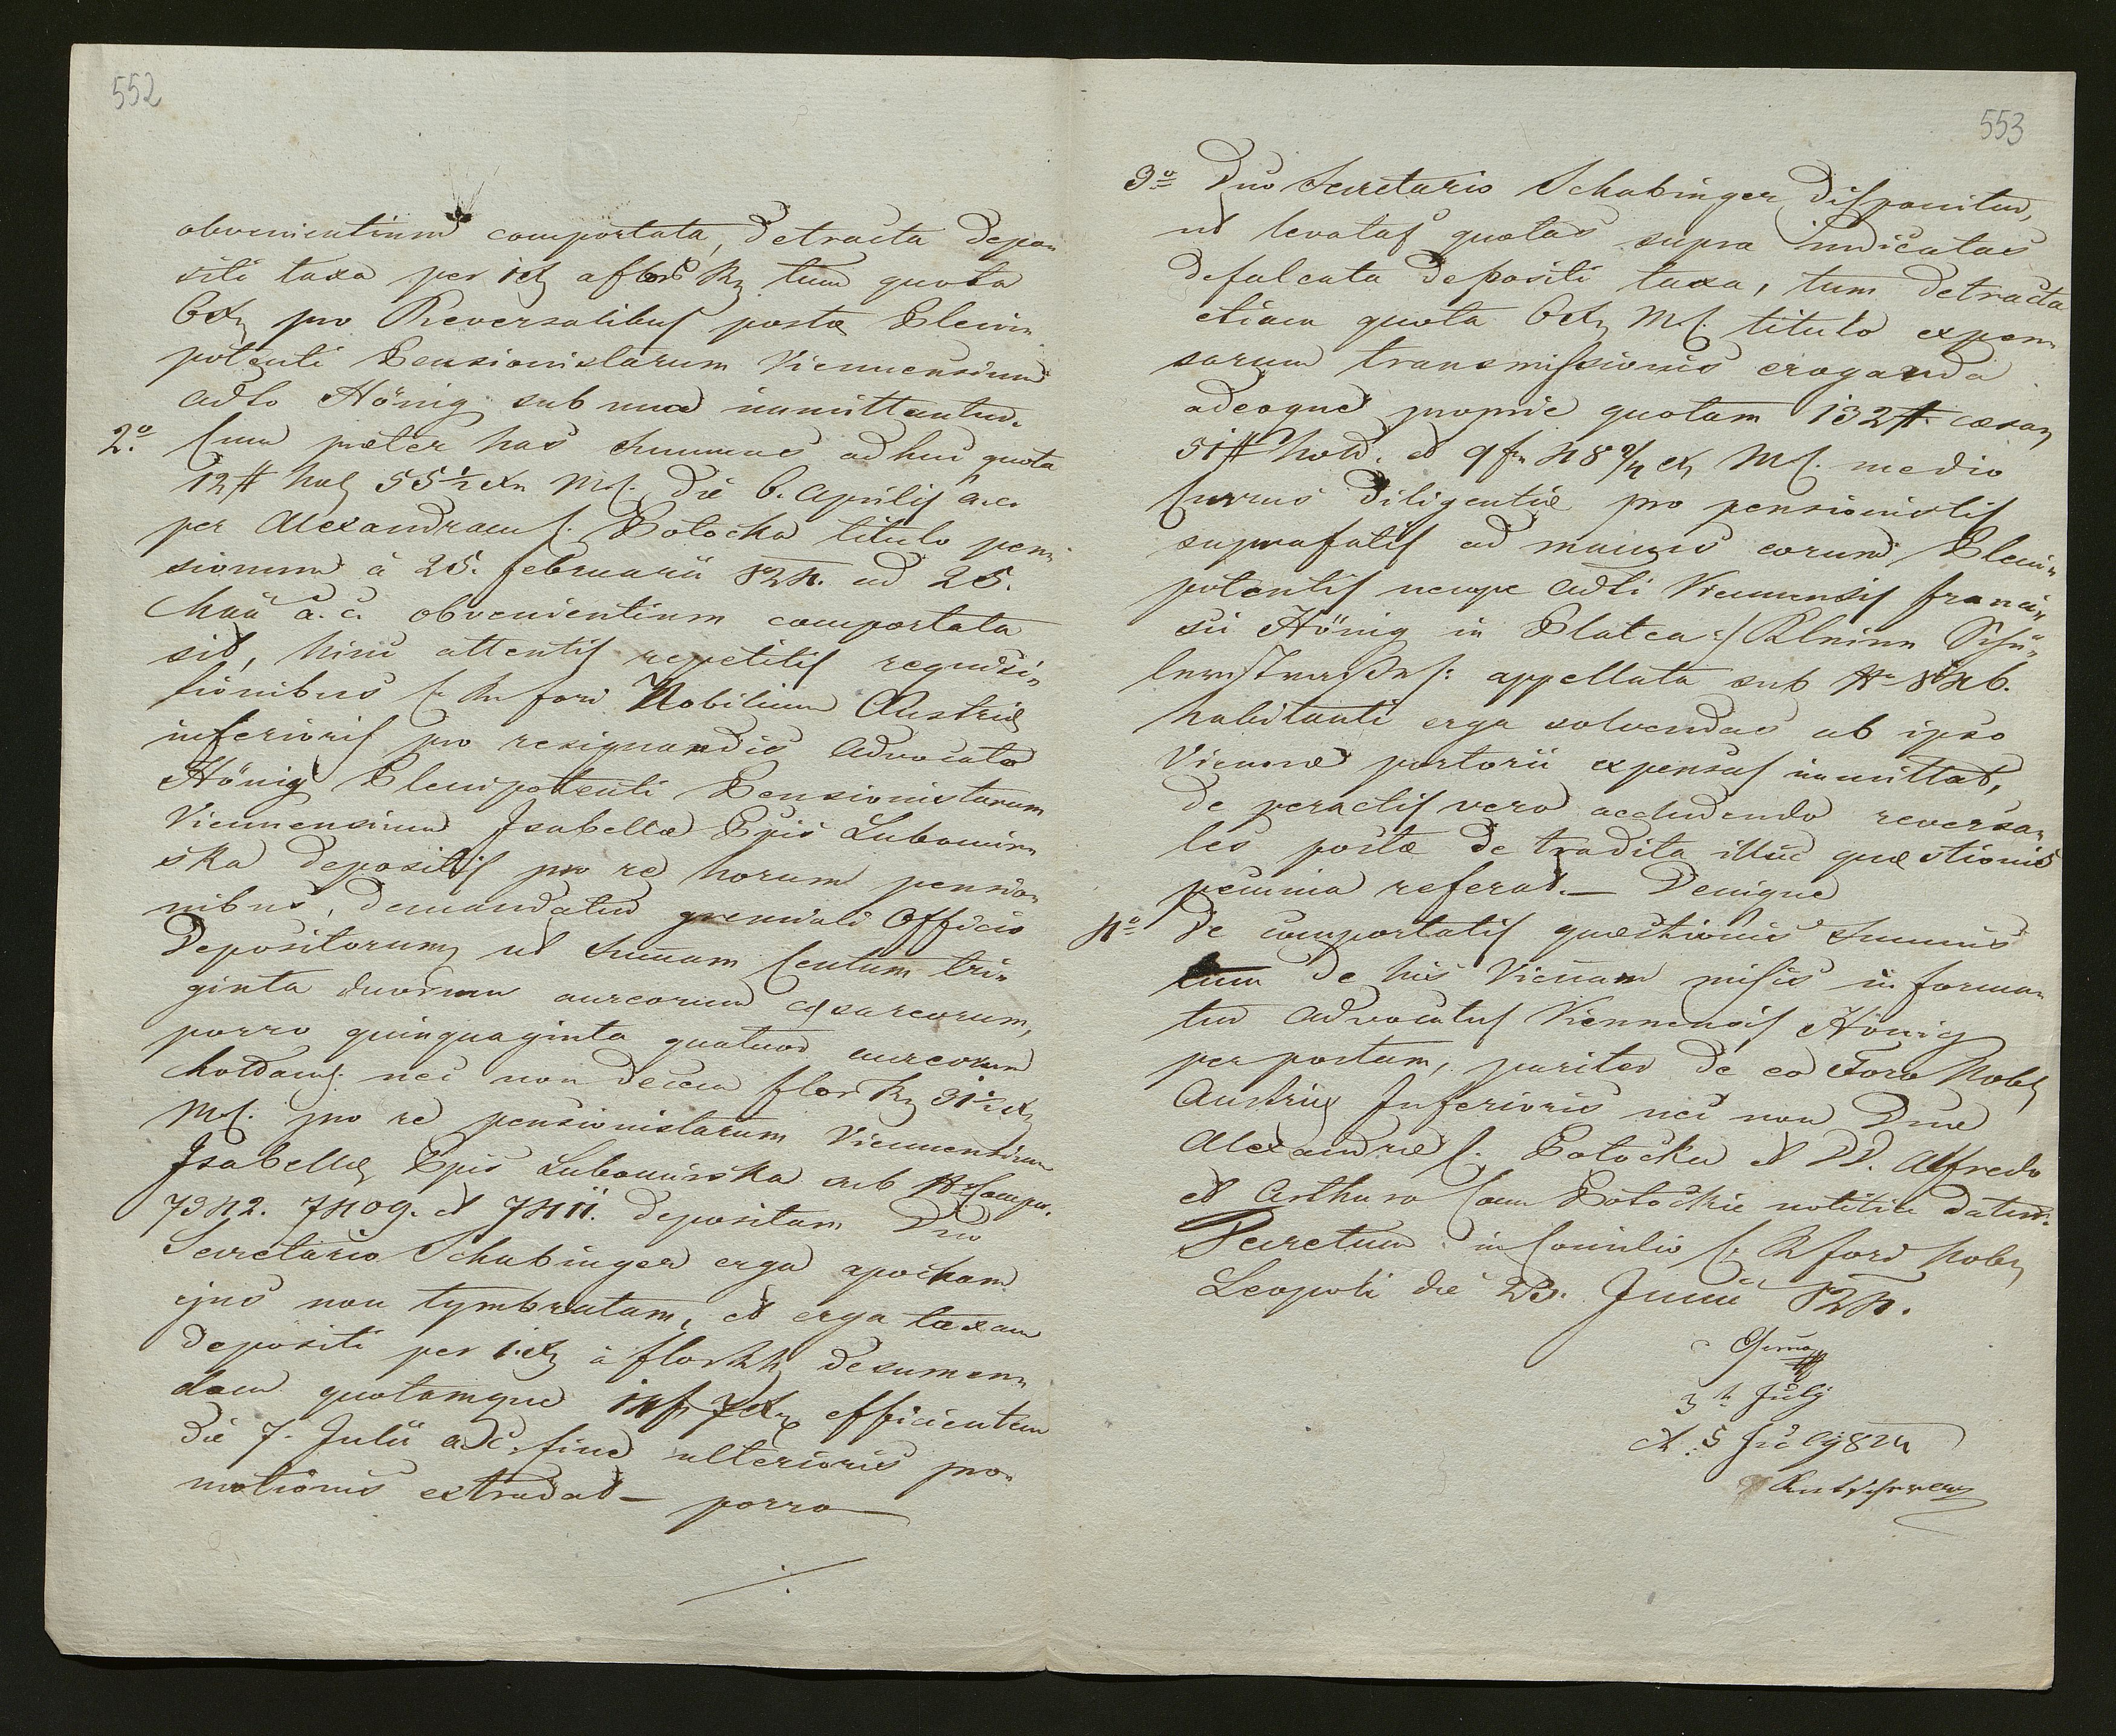 552
obvenientium comportata, detracta depo„
siti taxa per 1 xr a flor Rh tum quota
6 xr pro Reversalibus postæ Pleni„
potenti Pensionistarum Viennensium
Adto Hönig sub una inmittantur.
2.o Cum præter has summas adhuc quota
12 # hol 55 1/2 xr M.C. die 6. Aprilis a.c.
per Alexandram C. Potocka titulo pen„
sionum à 25. Februarii 824. ad 25.
Maii a. c. obvenientium comportata
sit, hinc attentis repetitis requisi„
tionibus C. R. fori Nobilium Austriæ
inferioris pro resignandis Advocato
Hönig Plenipotenti Pensionistarum
Viennensium Isabellæ Ppis Lubomir„
ska depositis pro re horum pensio„
nibus, demandatur gremiali Officio
Depositorum, ut Summam Centum tri„
ginta duorum aureorum cæsareorum,
porro quinquaginta quatuor aureorum
holdand. nec non decem flor Rh 31 1/2 xr
M.C. pro re pensionistarum Viennensium
Isabellæ Ppis Lubomirska sub Nr Compor.
7342. 7409. et 7411. depositam Dno
Secretario Schabinger erga apocham
ejus non tymbratam, et erga taxam
depositi per 1 xr à flor Rh desumen„
dam quotamque 14 f 7 xr efficientem
die 7. Julii a. c. fine ulterioris pro„
motionis extradat – porro
553
3o Dno Secretario Schabinger disponitur,
ut levatas quotas supra indicatas
defalcata depositi taxa, tum detracta
etiam quota 6 xr M.C. titulo expen„
sarum transmissionis eroganda
adeoque proprie quotam 132 # cæsar,
51 # hold. et 9 fr 48 2/4 xr M.C. medio
Currus diligentiæ pro pensionistis
suprafatis ad manus eorum Pleni„
potentis nempe Adti Viennensis Franci„
sci Hönig in Platea :/ Kleine Schü„
lerstrasse /: appellata sub Nr 846.
habitanti erga solvendas ab ipso
Viennæ portorii expensas inmittat,
de peractis vero accludendo reversa„
les postæ de tradita illuc quæstionis
pecunia referat. – Denique
4o De comportatis quæstionis Summis
tum de his Viennam missis informa„
tur Advocatus Viennensis Hönig
per postam, pariter de eo Foro Nobl
Austriæ Inferioris nec non Dnæ
Alexandræ C. Potocka et DD. Alfredo
et Arthuro Com Potockie notitia datur.
Decretum in Consilio C. R fori Nobl
Leopoli die 23. Junii 824.
3t July
Ex. 5 July 824